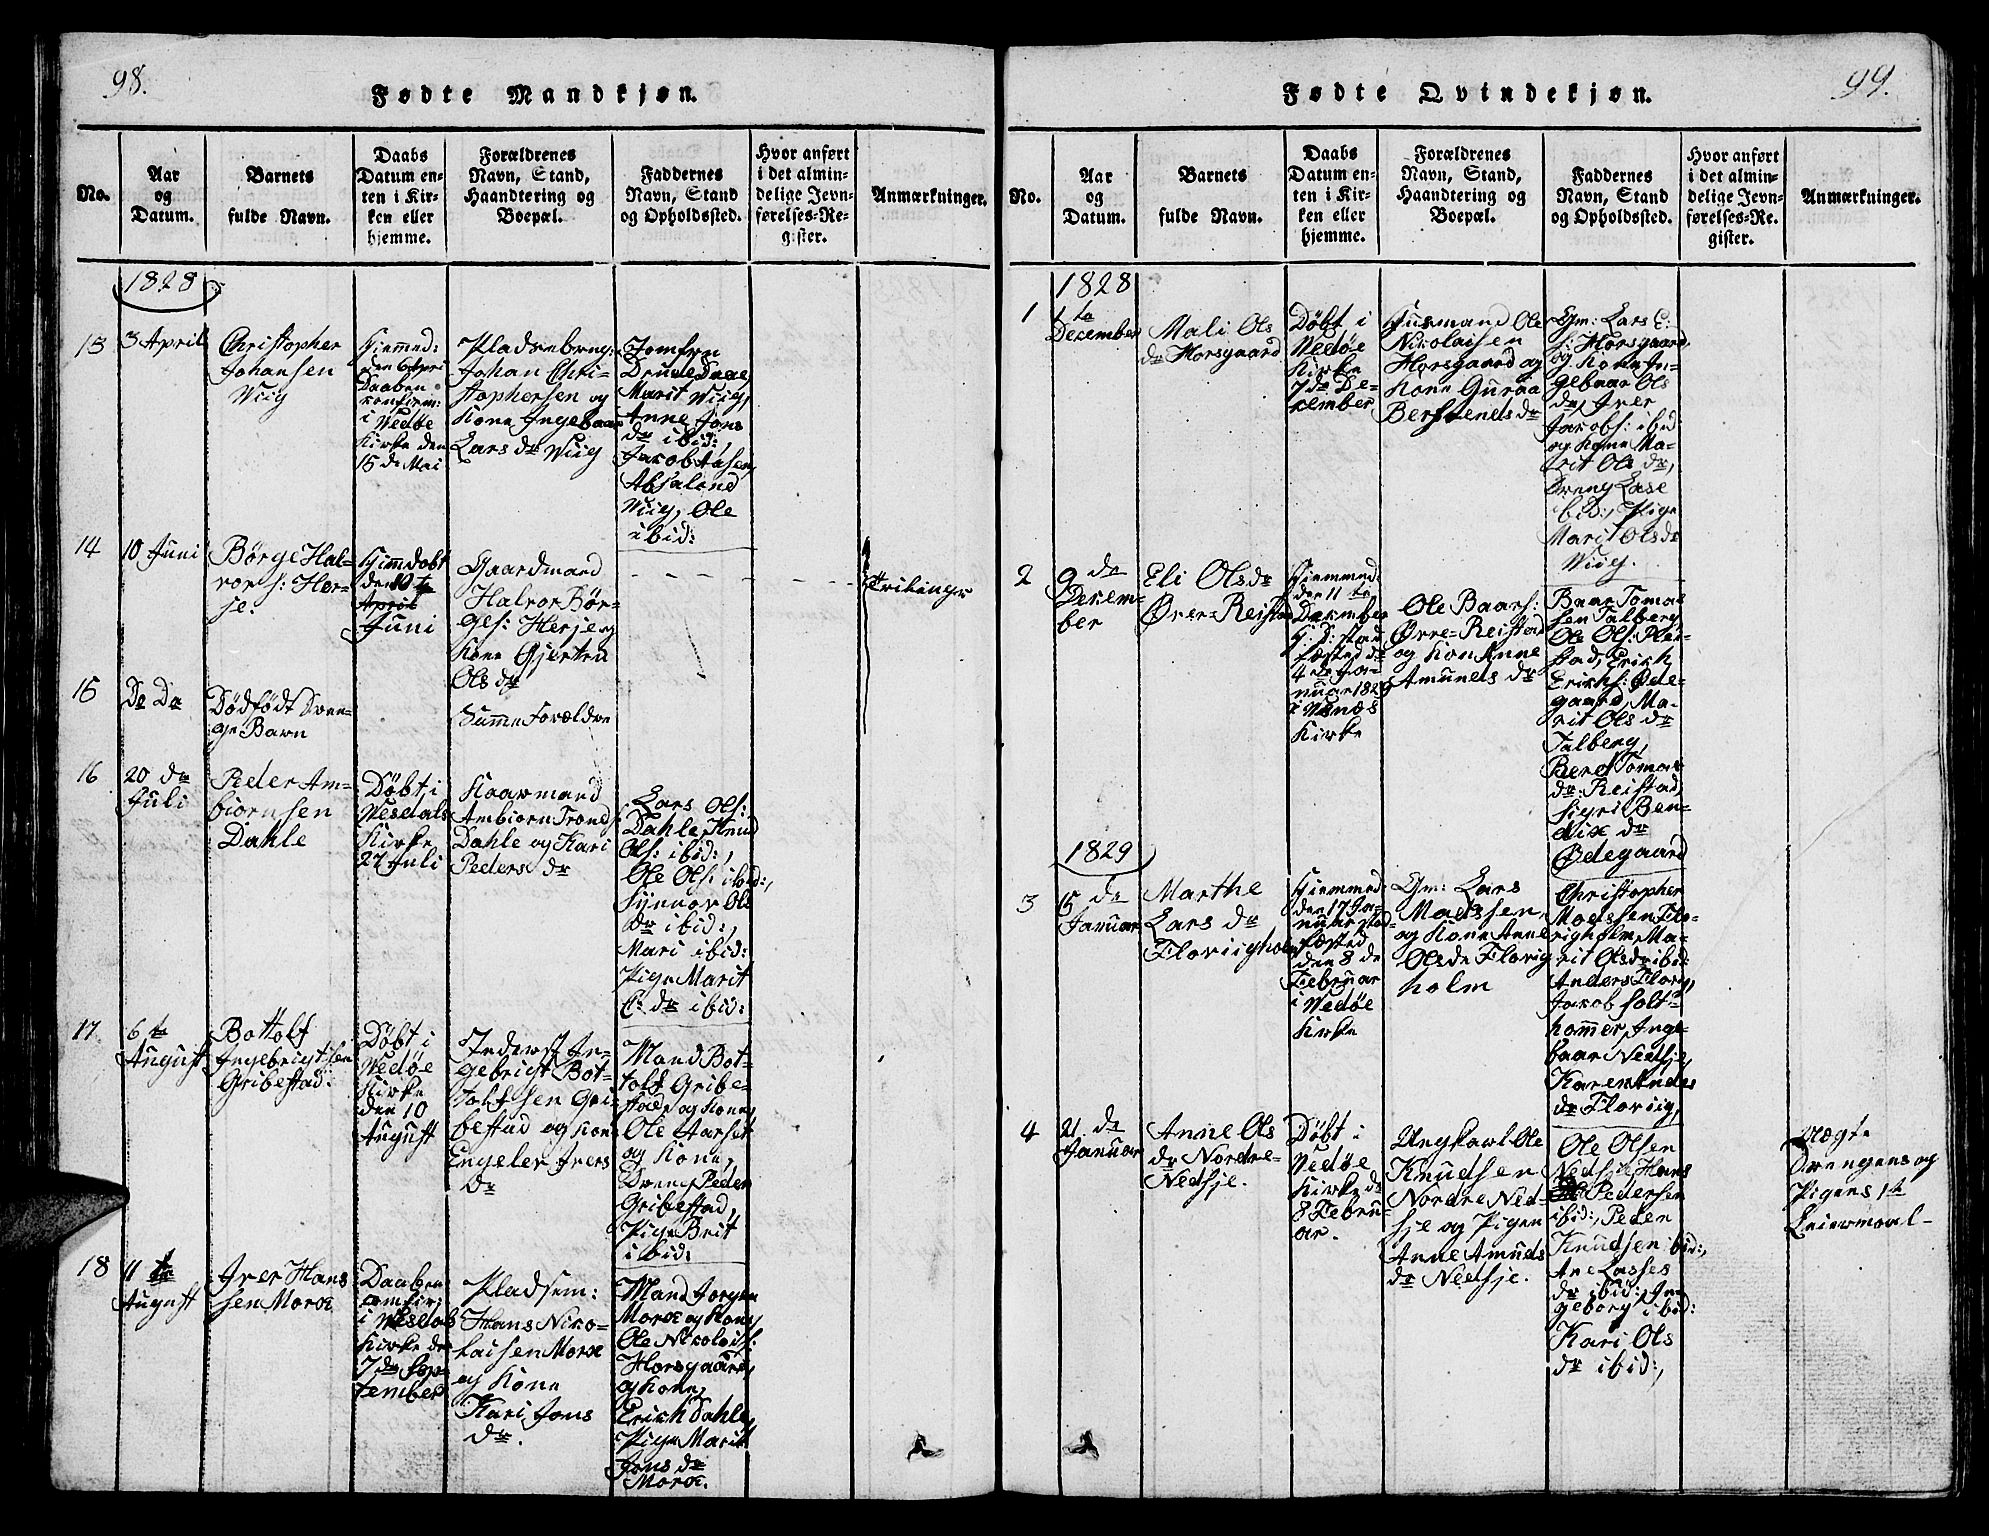 98.
Fødte Mandkjøn.
No.
Aar
og
Datum.
Barnets
fulde Navn.
Daabs
Datum en-
ten i Kir-
ken eller
hjemme.
Forældrenes
Navn, Stand,
Haandtering og
Boepæl.
Faddernes
Navn, Stand
og Opholdssted.
Hvor anført
i det almin-
delige Jevn-
førelses-Re-
gister.
Anmærkninger.
1828
13
3 April
Christopher
Johansen
Wiig
Hiemmed:
den 6 Apri
Daaben
confirm:
i Wedøe
Kirke den
15 de Mai
Pladsebrug:
Johan Chri-
stophersen og
Kone Ingebaar
Lars dr Wiig
Jomfru
Marit Wiig,
Anne Jons
dr ibid:,
Absalond
Wiig, Ole
ibid:
14
10 Juni
Børge Hal-
vors: Her-
je.
Hiemdøbt
den 10 te
April
Juni
Gaardmand
Halvor Bør-
ges: Herje og
Kone Gjertru
Ols dr
Tvilinger
15
Do Do
Dødfødt Dren-
ge Barn
Samme Forældre
16
20 de
Juli
Peder Am-
biørnsen
Dahle
Døbt i
Wesedals
Kirke
27 Juli
Kaarmand
Ambiørn Trond
Dahle og Kari
Peders dr
Lars Ols:
Dahle, Knud
Ols: ibid:,
Ole Ols: ibid:,
Synnov Ols
dr ibid:,
Mari ibid:
Pige Marit
E: dr ibid:
17.
6 te
August
Bottolf
Ingebrigtsen
Gribestad:
Døbt i
Wedøe
Kirke
den 10
August
Inderst In-
gebrigt Bot-
tolfsen Gri-
bestad og Kone
Engelev Ivers
dr
Mand Bot-
tolf Gribe-
stad og Kone,
Ole Aarset
og Kone,
Dreng Peder
Gribestad,
Pige Brit
ibid:
18
11 te
August
Iver Hans
sen Moroe
Daaben
confir:
i Wesedals
Kirke de
7 de Sep-
tember
Pladsem:
Hans Nico-
laisen Moroe
og Kone
Kari Jons
dr.
Mand Jørgen
Moroe og Kone,
Ole Nicolais:
Horsgaard,
og Kone,
Erich Dahle,
Pige Marit
Jons dr
Moroe.
99.
Fødte Qvindekjøn.
No.
Aar
og
Datum.
Barnets
fulde Navn.
Daabs
Datum en-
ten i Kir-
ken eller
hjemme.
Forældrenes
Navn, Stand,
Haandtering og
Boepæl.
Faddernes
Navn, Stand
og Opholdssted.
Hvor anført
i det almin-
delige Jevn-
førelses-Re-
gister.
Anmærkninger.
1828
1
1 te
December
Mali Ols
dr Horsgaard
Døbt i
Wedøe
Kirke
7 de De-
cember
Huusmand Ole
Nicolaisen
Horsgaard og
Kone Guroa
Berstends dr
Gm: Lars E:
s: Horsgaard,
og Kone In-
gebaar Ols
dr, Iver
Jacobs: ibid
og Kone Ma-
rit Ols dr,
Dreng Lase
ibid:, Pige
Marit Ols dr
Wiig.
2
9 de
Decem-
ber
Eli Ols dr
Øvre-Reistad
Hiemmed:
den 11 te
December
4 de Ja-
nuar 1829
i Wenæs
Kirke
Ole Baars:
Øvre-Reistad
og Kone Anne
Amunds dr
Baar Tomas
sen Talberg
Ole Ols: Rei-
stad, Erich
Erichs: Øde-
gaard, Ma-
rit Ols dr
Talberg,
Bereth Tomas
dr Reistad,
Sigri Ben-
dix dr
Ødegaard
1829
3
15 de
Januar
Marthe
Lars dr
Floviigholm
Hiemmed
den 17 Ja-
nuar stad-
fæsted
den 8 de
Februar
i Wedøe
Kirke
Gm: Lars
Madssen,
og Kone Anne
Ols dr Flovig
holm
Christopher
Madssen Flo-
vigholm, Ma-
rit Ols dr ibid
Anders Flovig,
Jacob Solt-
hammer, Inge-
baar Nedsje,
Karen Andes
dr Flovig,
4
21 de
Januar
Anne Ols
dr Nordre-
Nedsje.
Døbt i
Wedøe
Kirke d:
8 Febru-
ar.
Ungkarl Ole
Knudsen
Nordre Ned-
sje og Pigen
Anne Amuds
dr Nedsje.
Ole Olsen
Nedsje, Hans
Pedersen
ibid:, Peder
Knudsen ibid:,
Ane Lasses
dr ibid:, In-
geborg ibid:
Kari Ols
dr ibid:,
Uægte
Drengens og
Pigens 1te
Leiermaal-